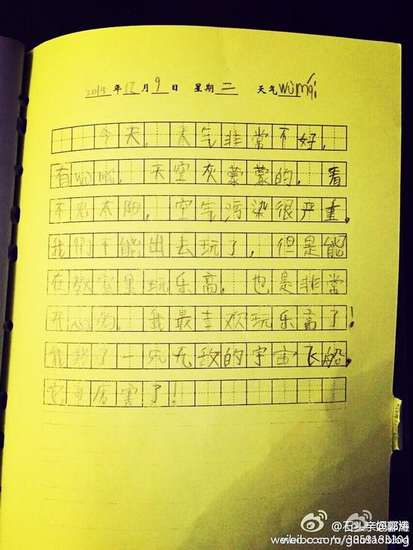 2014年12月9日 星期二 天气wù mái
今天，天气非常不好，
有wù mái，天空灰蒙蒙的，看
不见太阳，空气污染很严重。
我们不能出去玩了，但是能
在教室里玩乐高。也是非常
开心的，我最喜欢玩乐高了！
我拼了一艘无敌的宇宙飞船。
它可厉害了！